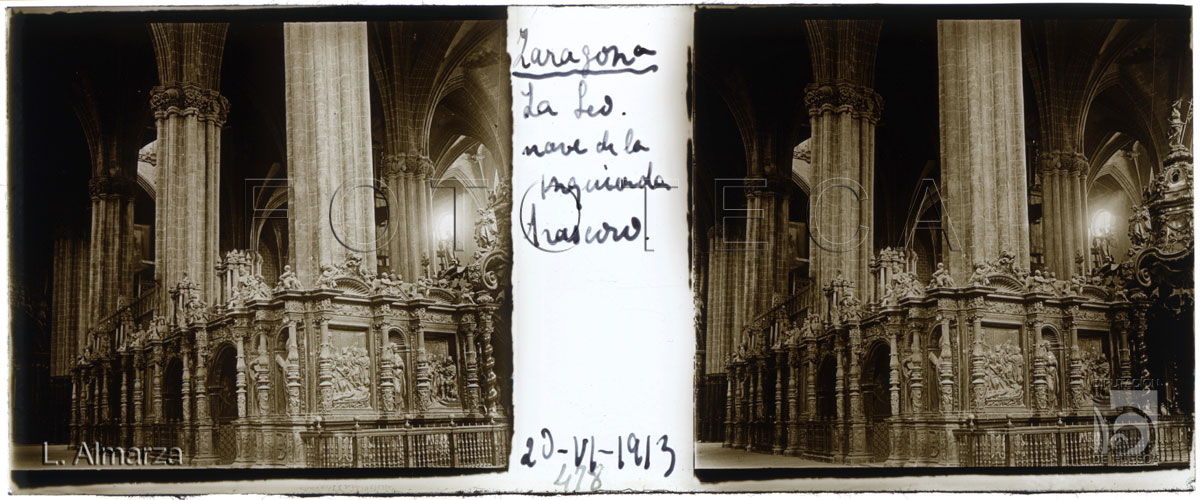 Zaragona
La Seo.
nave de la
izquierda
Trascoro
20-VI-1913
478
FOTOTECA
L. Almarza
DIPUTACION